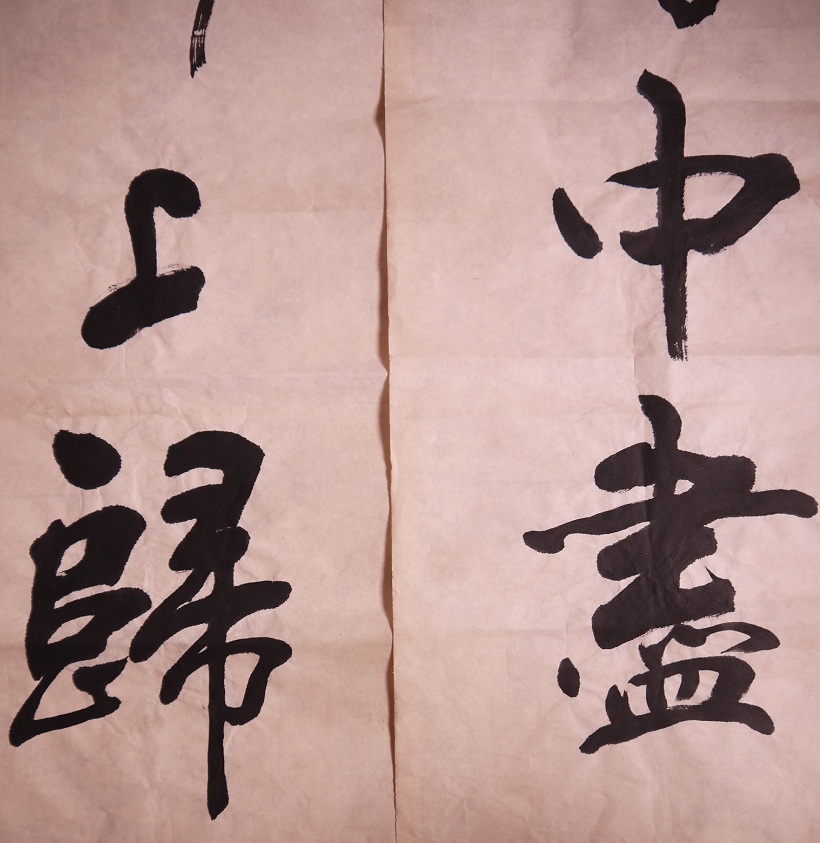 中盡
上歸